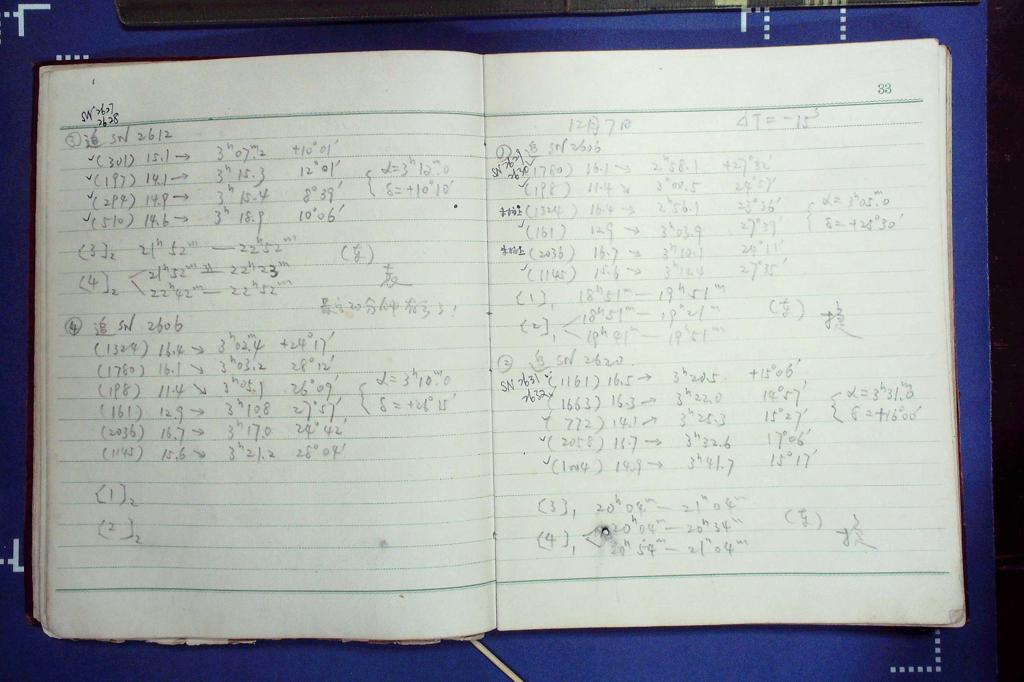 SN 2627
2628
③ 追 SN 2612
✓(301) 15.1 → 3ʰ07ᵐ.2 +10°01′
✓(197) 14.1 → 3ʰ15.3 12°01′
✓(294) 14.9 → 3ʰ15.4 8°39′
✓(510) 14.6 → 3ʰ18.9 10°06′
{ α=3ʰ12ᵐ.0
δ=+10°10′
(3)₂ 21ʰ52ᵐ — 22ʰ52ᵐ
(4)₂ < 21ʰ52ᵐ — 22ʰ23ᵐ
22ʰ42ᵐ — 22ʰ52ᵐ
④ 追 SN 2606
(1324) 16.4 → 3ʰ02ᵐ.4 +24°17′
(1780) 16.1 ↘ 3ʰ03.2 28°12′
(198) 11.4 ↘ 3ʰ05.1 26°09′
(161) 12.9 → 3ʰ10.8 27°57′
(2036) 16.7 → 3ʰ17.0 24°42′
(1145) 15.6 → 3ʰ21.2 28°04′
{ α=3ʰ10ᵐ.0
δ=+26°15′
(1)₂
(2)₂
33
12月7日 ΔT=-15ˢ
① 追 SN 2606
SN 2629
2630
(1780) 16.1 → 2ʰ58.1 +27°52′
✓(198) 11.4 ↘ 3ʰ00.5
(1324) 16.4 → 2ʰ56.1 23°56′
✓(161) 12.9 → 3ʰ03.9 27°39′
(2036) 16.7 → 3ʰ10.1 24°11′
✓(1145) 15.6 → 27°35′
{ α=3ʰ05ᵐ.0
δ=+25°30′
(1)₁ 18ʰ51ᵐ — 19ʰ51ᵐ
(2)₁ < 18ʰ51ᵐ — 19ʰ21ᵐ
19ʰ41ᵐ — 19ʰ51ᵐ
② 追 SN 2620
SN 2631
2632
✓(1161) 16.5 → 3ʰ20.5 +15°06′
(1663) 16.3 → 3ʰ22.0 14°57′
(772) 14.1 → 3ʰ25.3 15°27′
✓(2058) 16.7 → 3ʰ32.6 17°06′
✓(1004) 14.9 → 3ʰ41.7 15°17′
{ α=3ʰ31ᵐ.0
δ=+16°00′
(3)₁ 20ʰ04ᵐ — 21ʰ04ᵐ
(4)₁ < 20ʰ04ᵐ — 20ʰ34ᵐ
20ʰ54ᵐ — 21ʰ04ᵐ